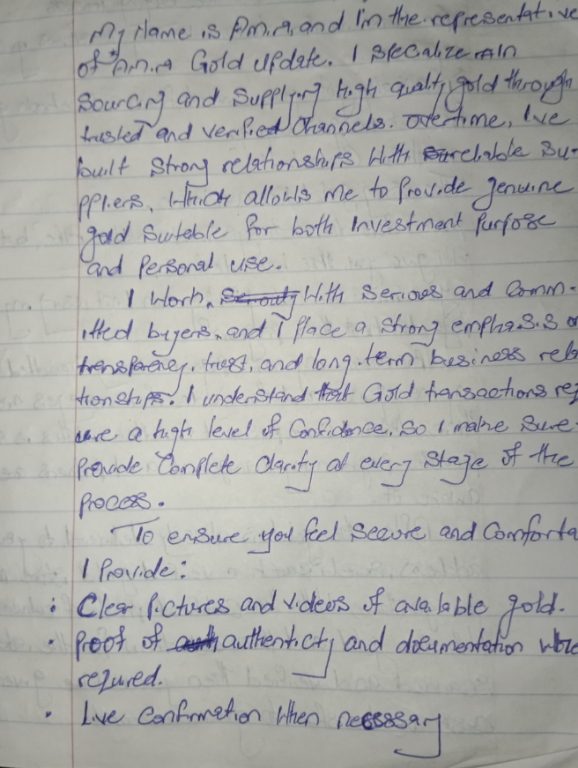 My Name is Am.A, and I'm the representative
of A.M.A Gold update. I specialize in
Sourcing and Supplying high quality gold through
trusted and verified Channels. overtime, I've
built strong relationships With reliable Su-
ppliers, Which allows me to Provide genuine
gold Suitable for both Investment Purpose
and Personal use.
I Work With Serious and Comm-
itted buyers, and I place a strong emphasis o
transparency, trust, and long-term business rela
tionships. I understand that Gold transactions req
uire a high level of Confidence, So I make Sure
Provide Complete Clarity at every Stage of the
Process.
To ensure you feel Secure and Comforta
I Provide:
• Clear Pictures and videos of available gold.
• Proof of authenticty and documentation Where
required.
• Live Confirmation When necessary